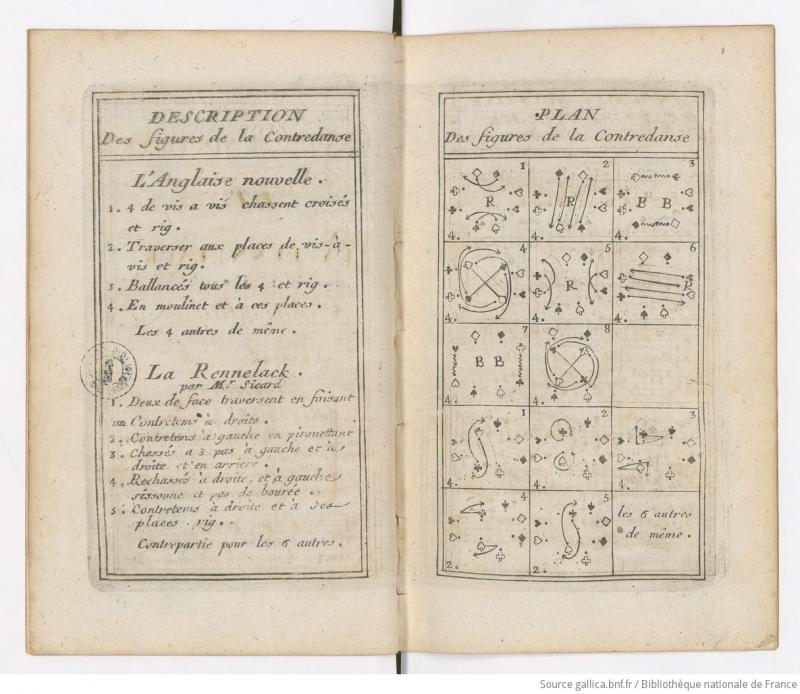 DESCRIPTION
Des figures de la Contredanse
L'Anglaise nouvelle.
1. 4 de vis a vis chassent croisés
et rig.
2. Traverser aux places de vis-à-
vis et rig.
3. Ballancés tous les 4 et rig.
4. En moulinet et à ces places.
Les 4 autres de même.
La Rennelack.
par Mr. Sicard
1. Deux de face traversent en faisant
un Contretems à droite.
2. Contretems à gauche en pirouettant
3. Chassés a 3 pas à gauche et à
droite et en arriere.
4. Rechassés à droite, et à gauche
sissonne et pas de bourée.
5. Contretems à droite et à ses
places, rig.
Contrepartie pour les 6 autres.
PLAN
Des figures de la Contredanse
1 2 3
R R B B
4. 4. 4.
4 5 6
R R
4. 4. 4.
7 8
B B
4. 4.
1 2 3
4. 4. 4.
4 5
les 6 autres
de même.
2. 2.
Source gallica.bnf.fr / Bibliothèque nationale de France